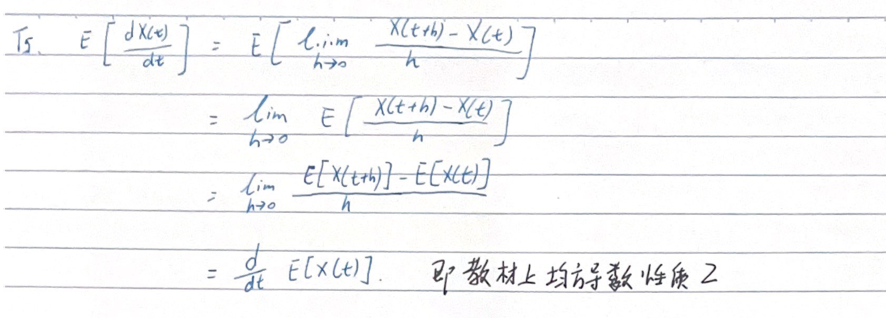 T5. E[dX(t)/dt] = E[l.i.m h→0 (X(t+h) - X(t))/h]
= lim h→0 E[(X(t+h) - X(t))/h]
= lim h→0 (E[X(t+h)] - E[X(t)])/h
= d/dt E[X(t)]. 即教材上均方导数性质2